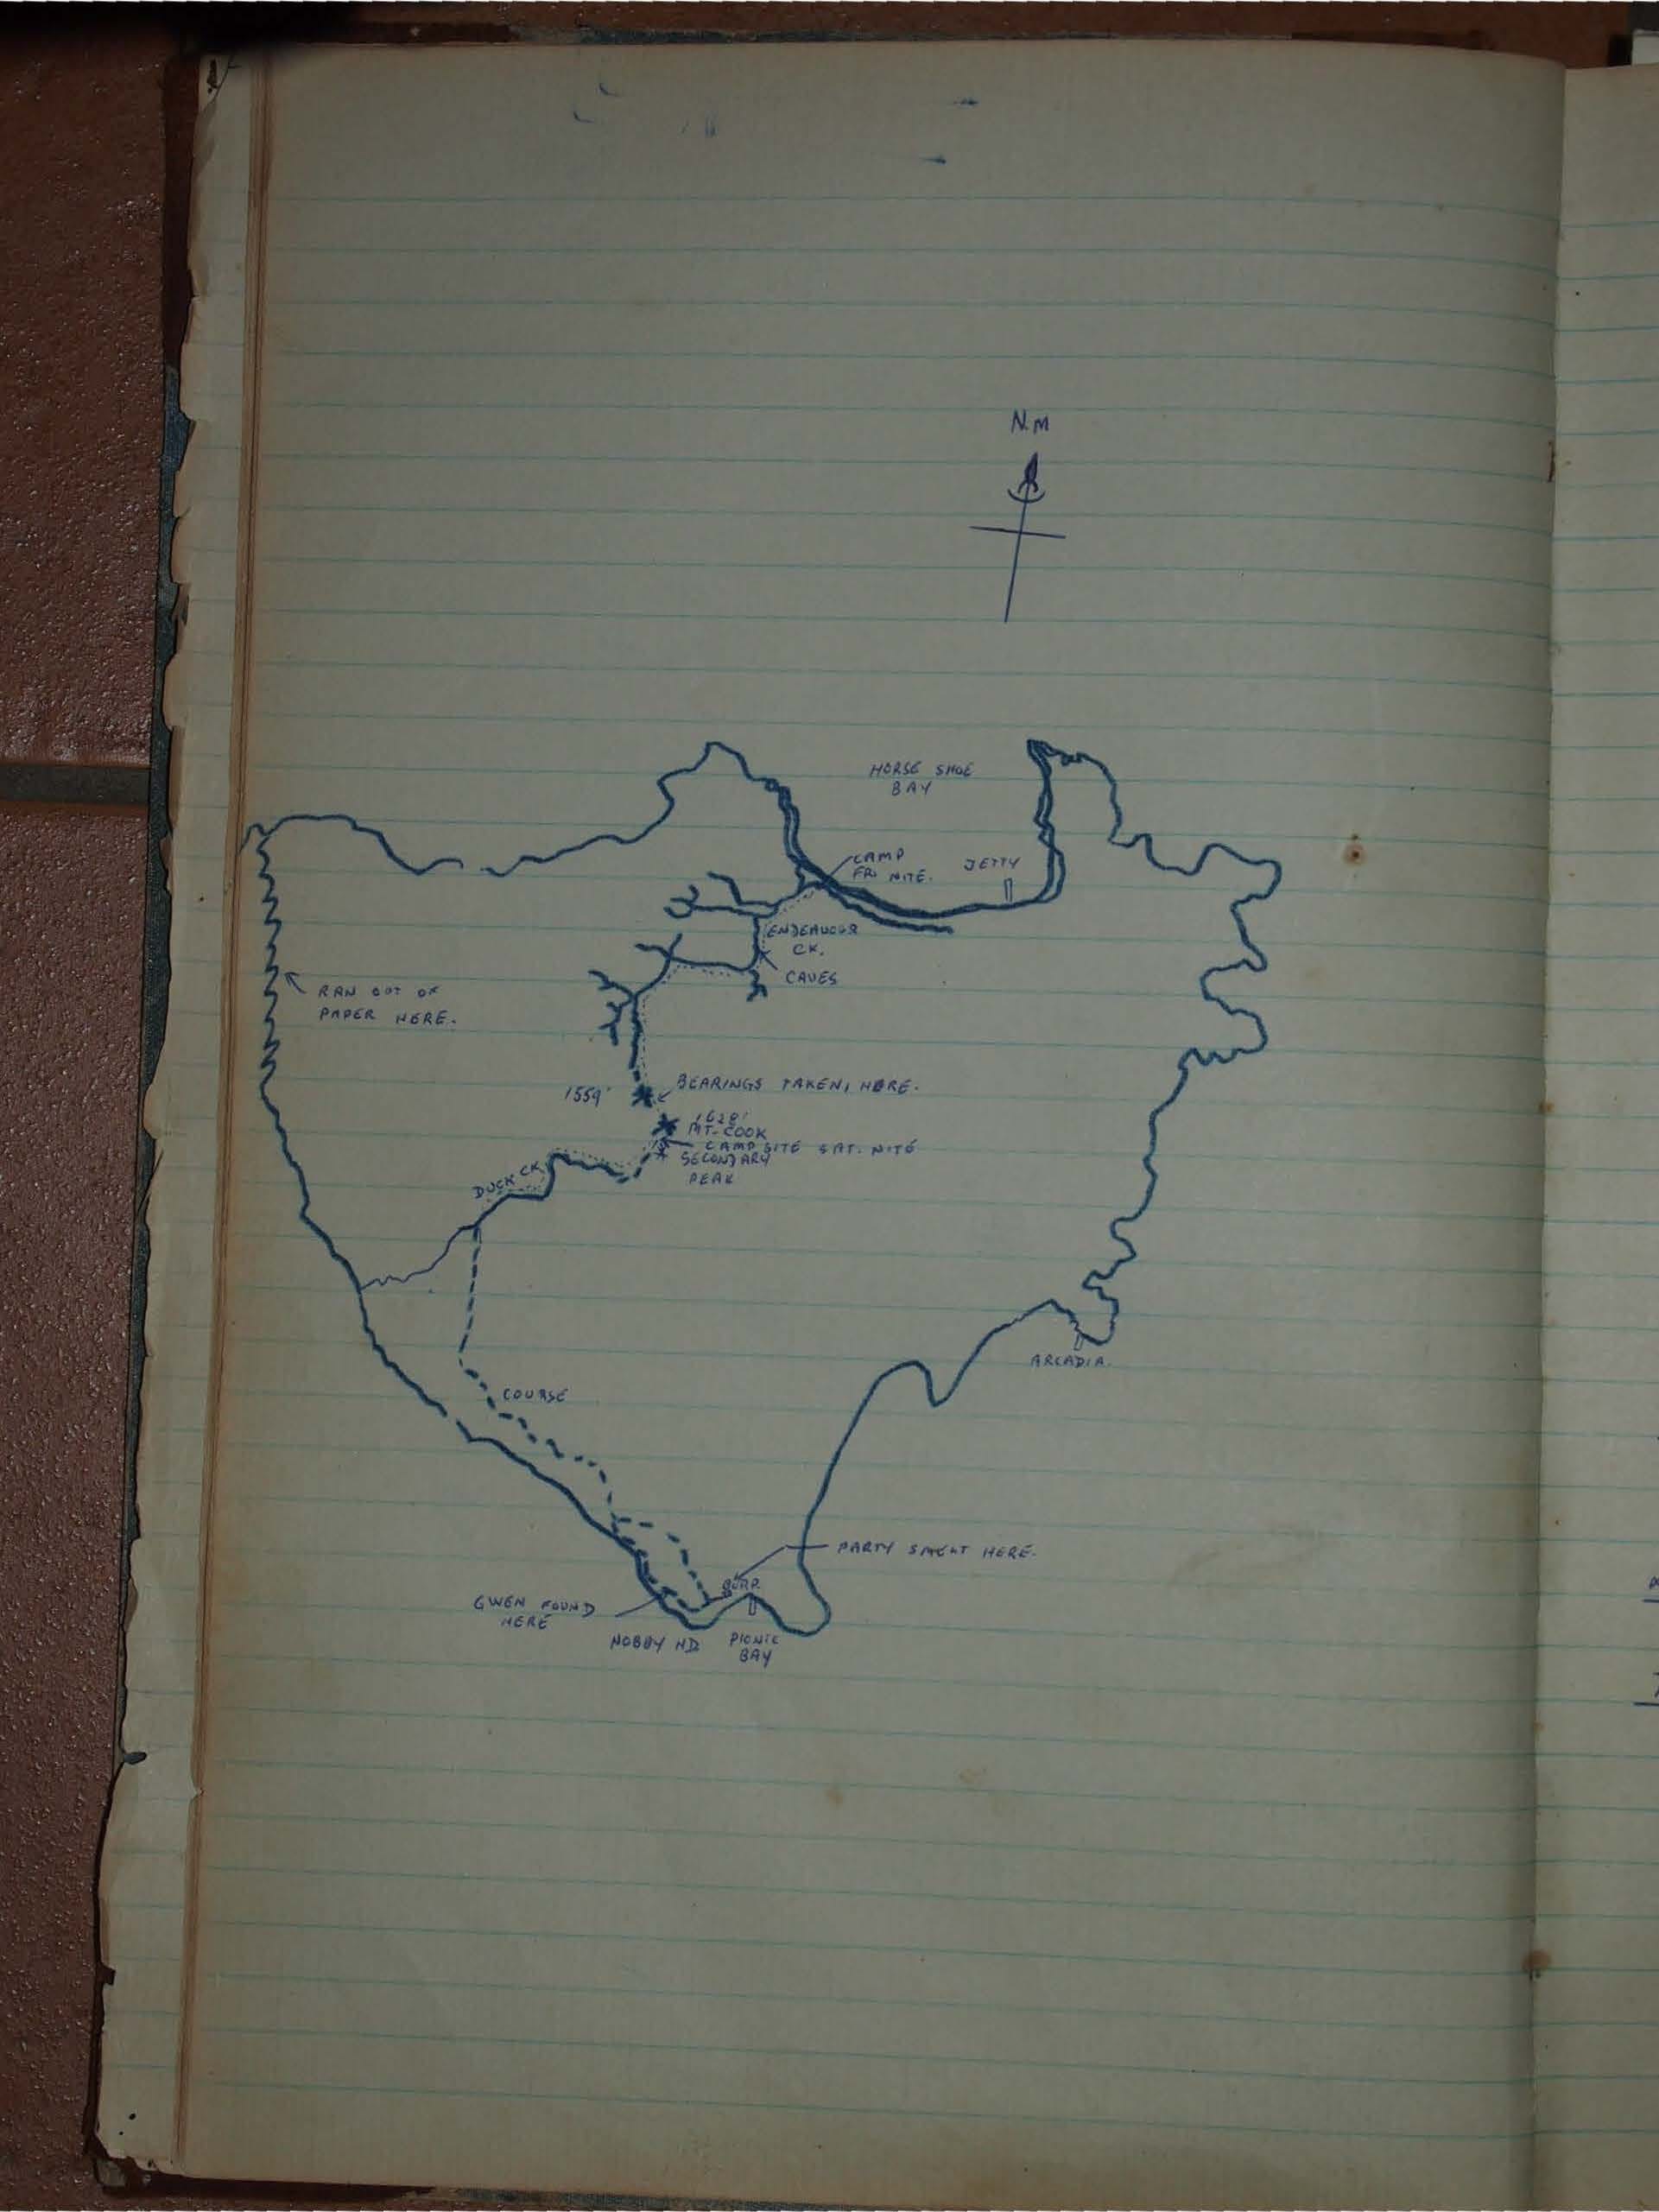 N.M
HORSE SHOE
BAY
CAMP
FRI NITE.
JETTY
ENDEAVOUR
CK.
CAVES
RAN OUT OF
PAPER HERE.
1559'
BEARINGS TAKEN, HERE.
1628'
MT. COOK
CAMP SITE SAT. NITE
SECONDARY
PEAK
DUCK CK.
COURSE
ARCADIA.
PARTY SMELT HERE.
GWEN FOUND
HERE
NOBBY HD
PICNIC
BAY